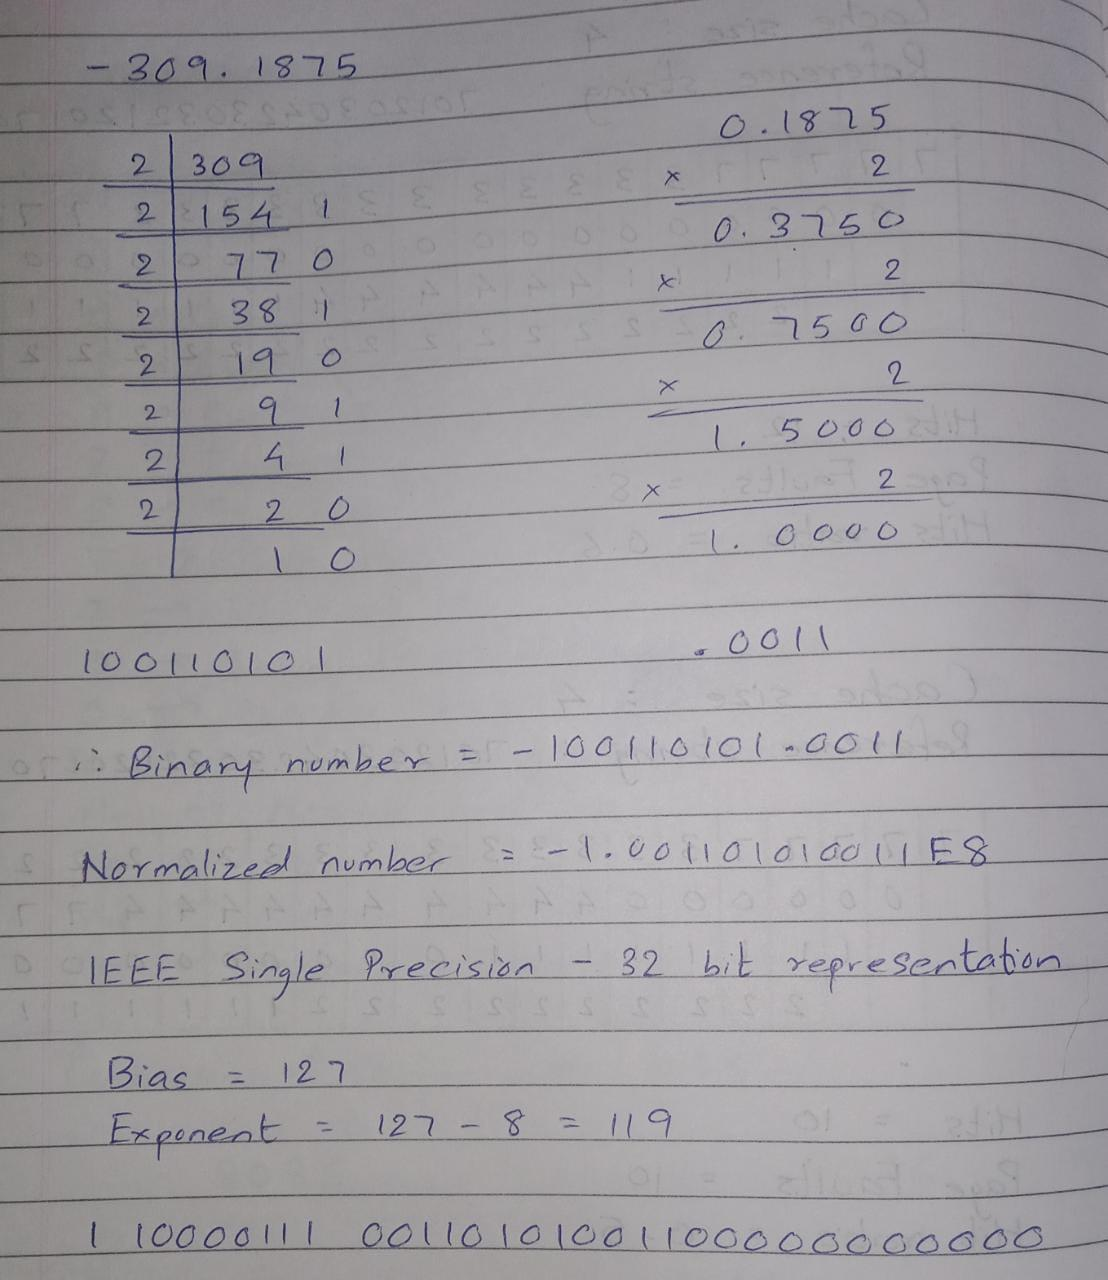 - 309.1875
2 309
2 154 1
2 77 0
2 38 1
2 19 0
2 9 1
2 4 1
2 2 0
1 0
100110101
0.1875
x 2
0.3750
x 2
0.7500
x 2
1.5000
x 2
1.0000
.0011
∴ Binary number = - 100110101.0011
Normalized number = -1.001101010011 E8
IEEE Single Precision - 32 bit representation
Bias = 127
Exponent = 127 - 8 = 119
1 10000111 00110101001100000000000